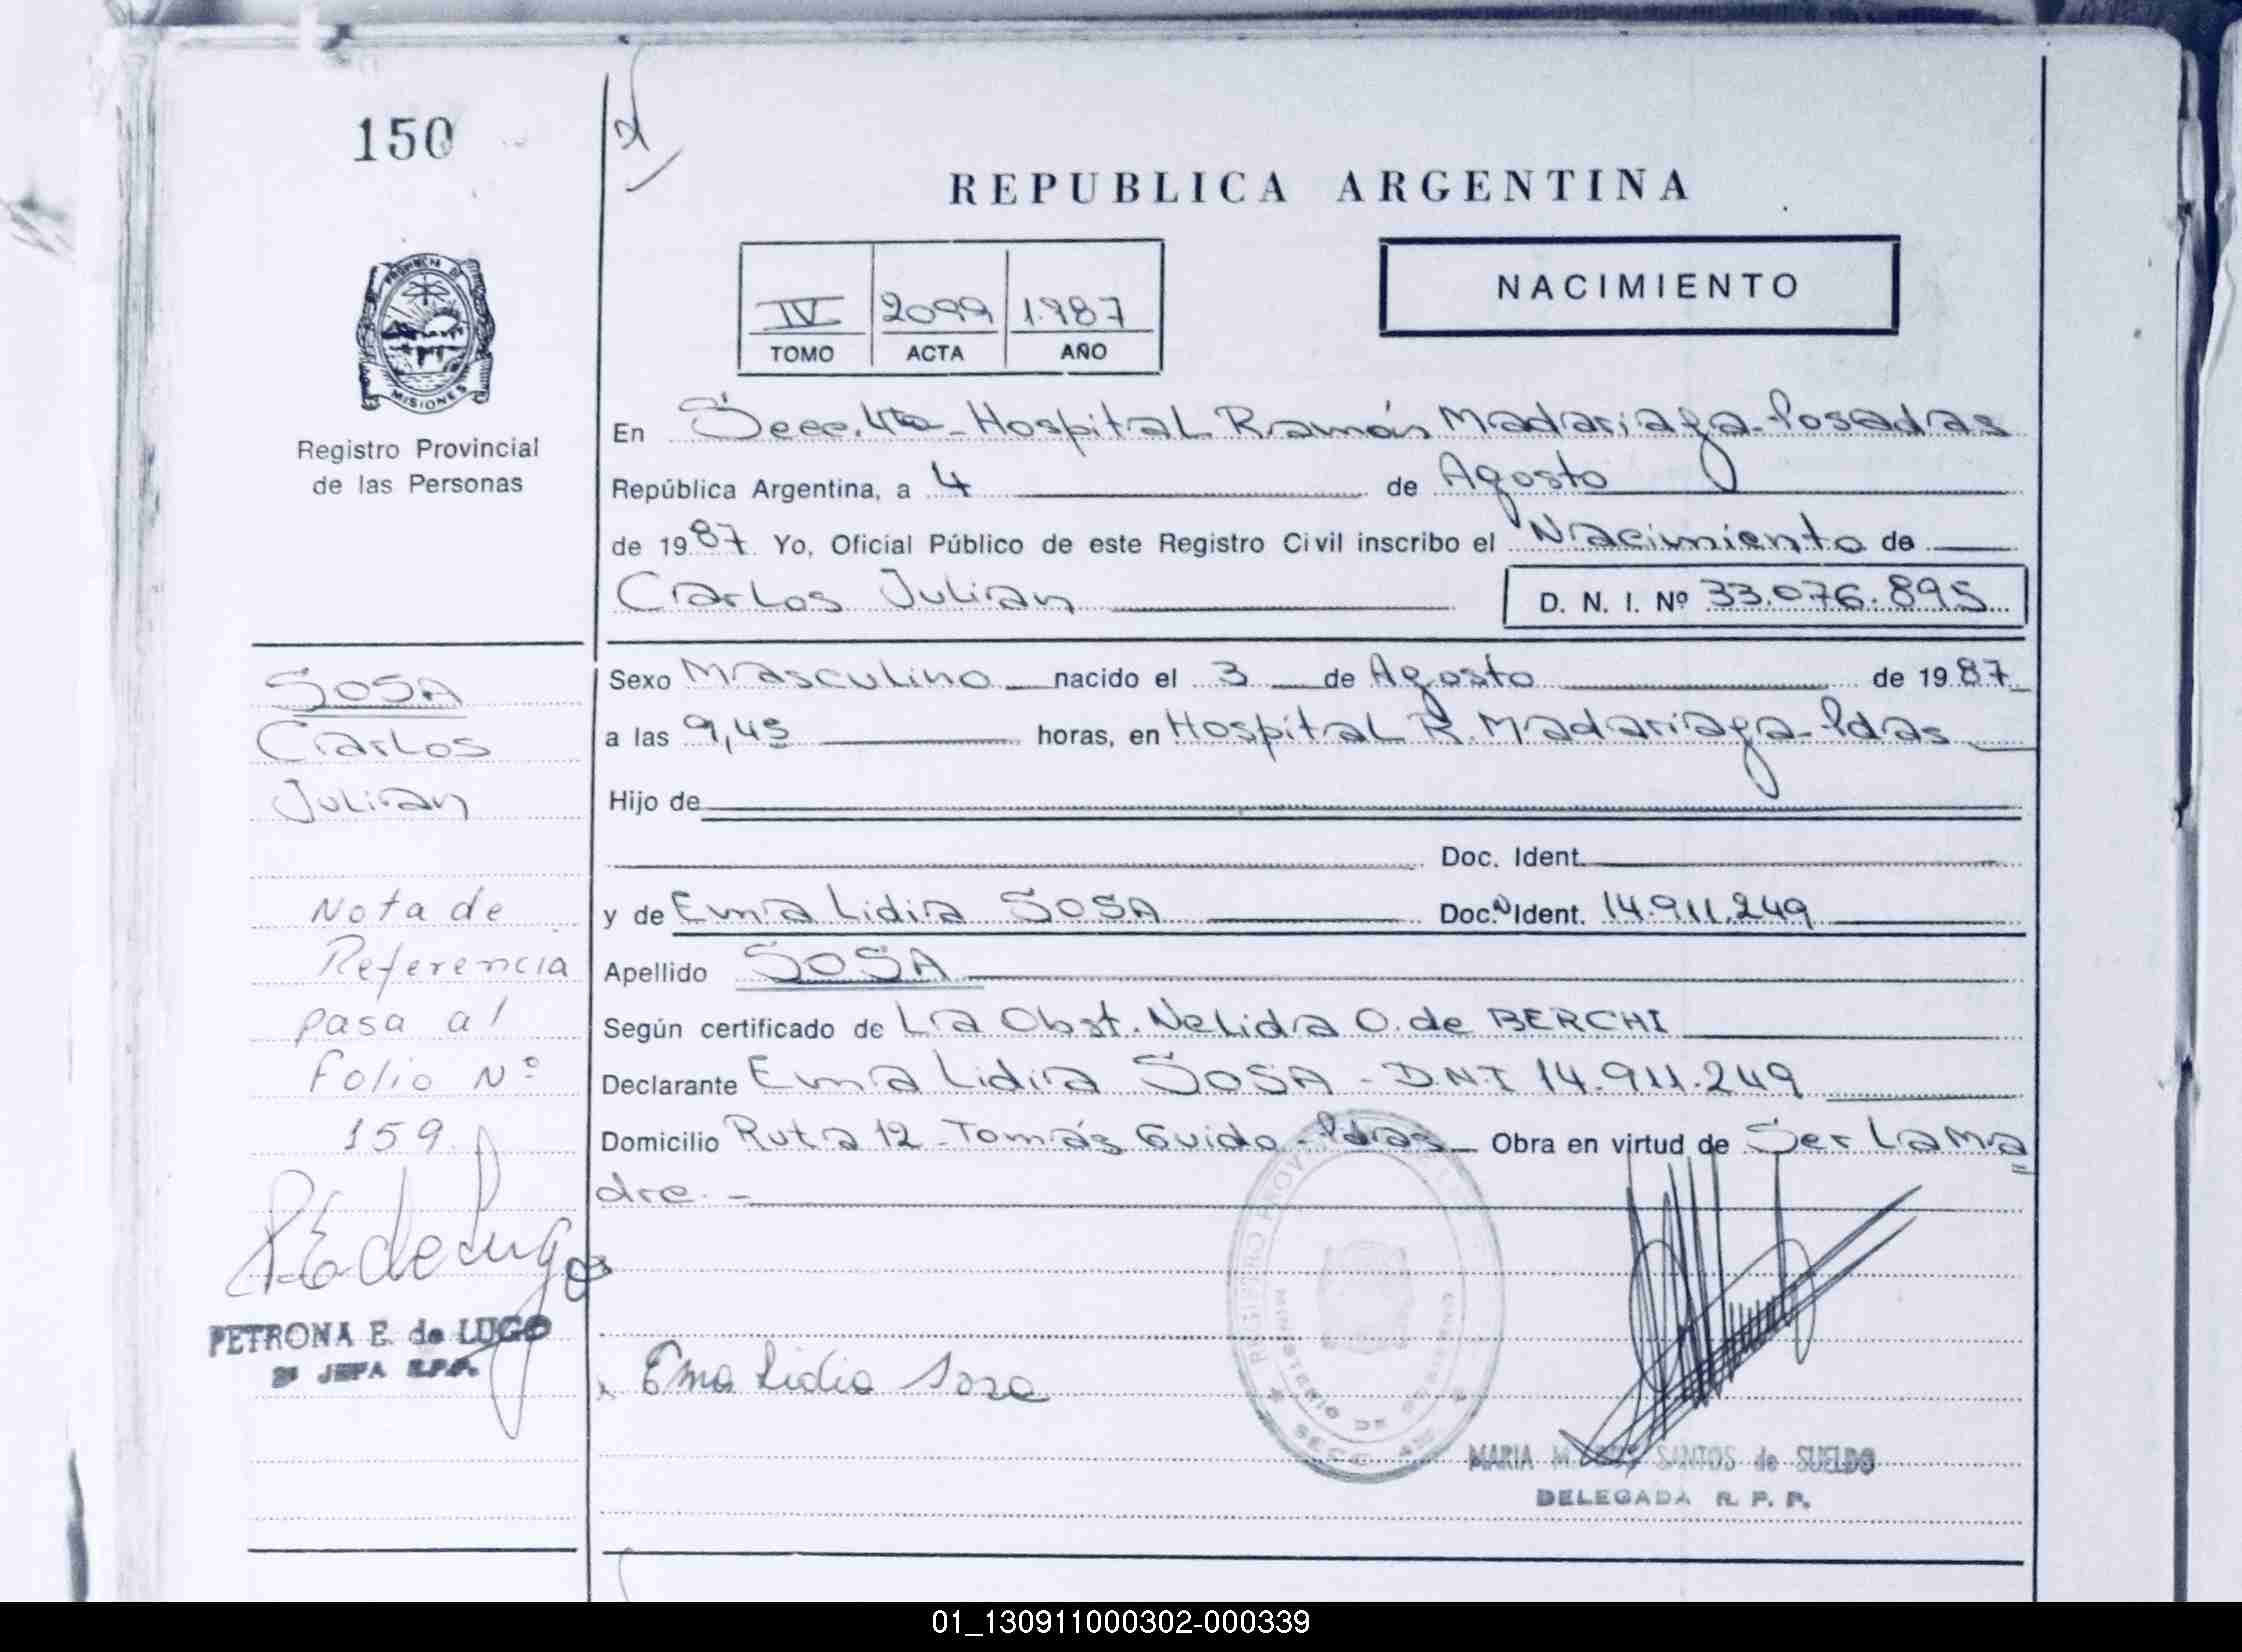 150
REPUBLICA ARGENTINA
PROVINCIA DE MISIONES
Registro Provincial
de las Personas
IV 2099 1.987
TOMO ACTA AÑO
NACIMIENTO
En Secc. 4ta - Hospital Ramón Madariaga - Posadas
República Argentina, a 4 de Agosto
de 1987. Yo, Oficial Público de este Registro Civil inscribo el Nacimiento de
Carlos Julian D. N. I. Nº 33.076.895
SOSA
Carlos
Julian
Sexo Masculino nacido el 3 de Agosto de 1987
a las 9,45 horas, en Hospital R. Madariaga - Pdas
Hijo de
Doc. Ident.
y de Ema Lidia SOSA Doc. Ident. 14.911.249
Apellido SOSA
Según certificado de La Obst. Nelida O. de BERCHI
Declarante Ema Lidia SOSA - D.N.I 14.911.249
Domicilio Ruta 12 - Tomás Guido - Pdas Obra en virtud de Ser La Ma
dre. -
Nota de
Referencia
pasa al
Folio Nº
159.
P E de Lugo
PETRONA E. de LUGO
2ª JEFA R.P.P.
Ema Lidia Sosa
REGISTRO PROV
MINISTERIO DE GOBIERNO
SECC. 4ta
MARIA M. SANTOS de SUELDO
DELEGADA R. P. P.
01_130911000302-000339